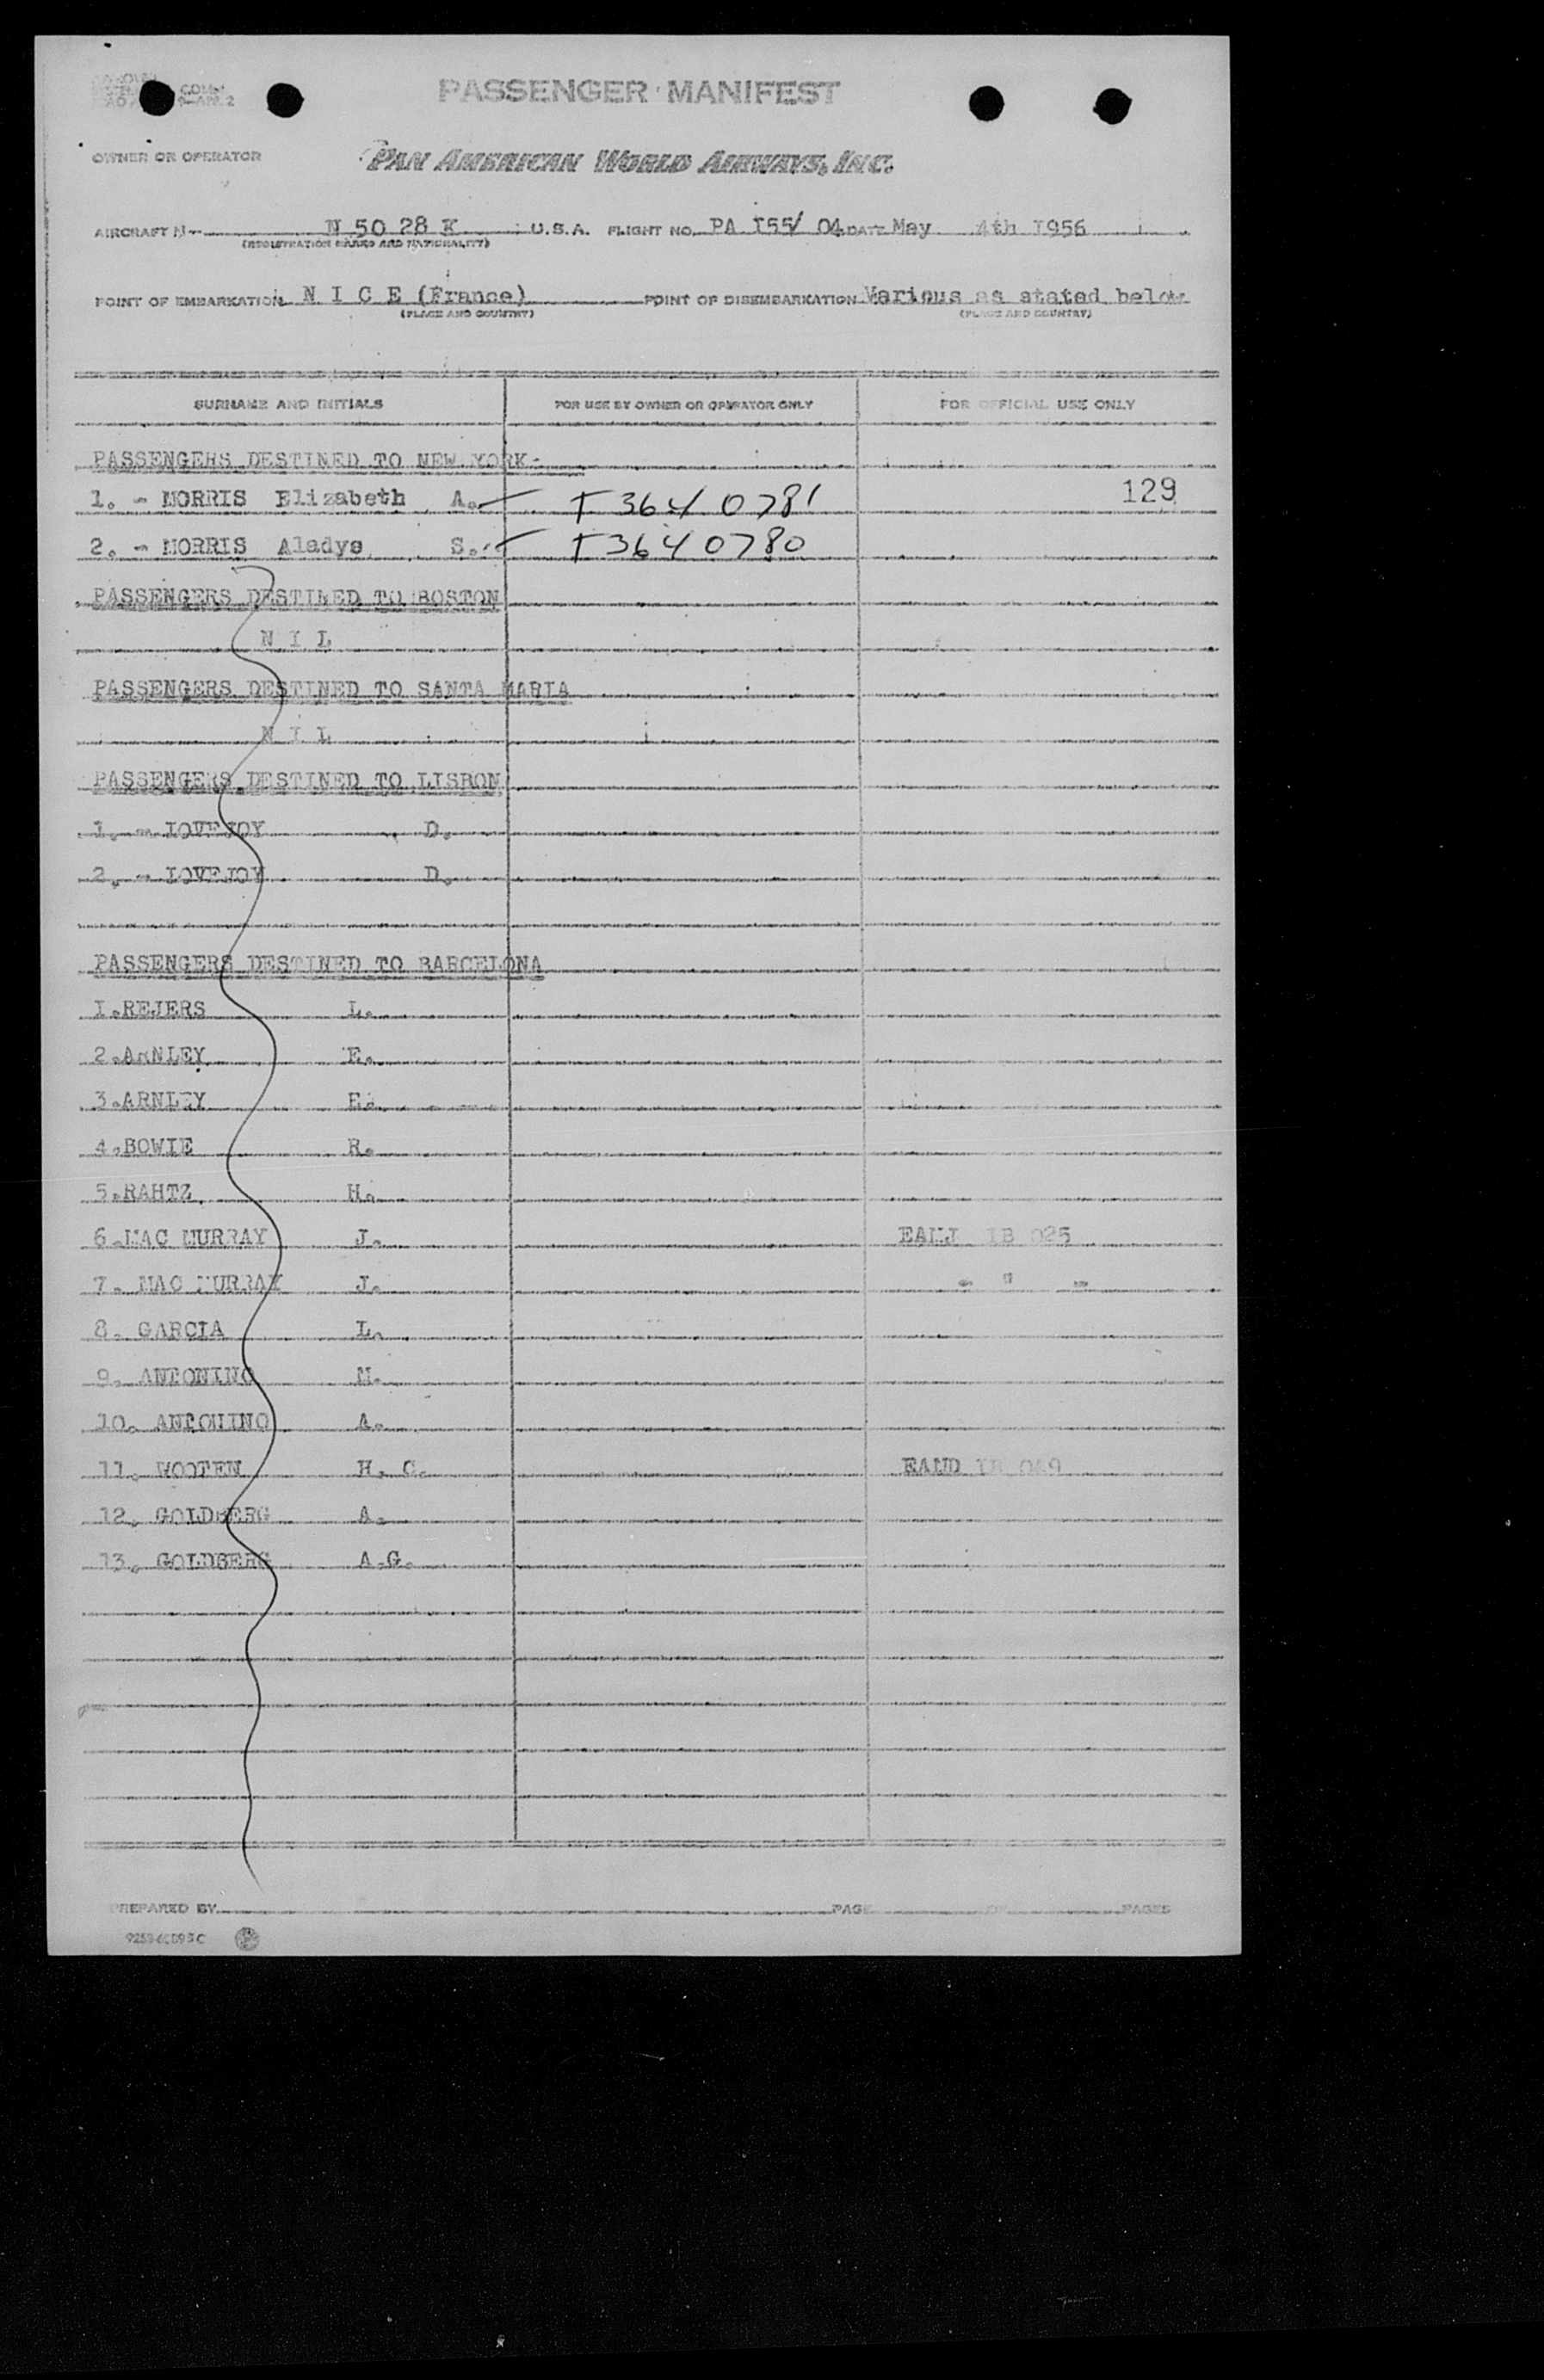 PASSENGER MANIFEST
OWNER OR OPERATOR PAN AMERICAN WORLD AIRWAYS, INC.
AIRCRAFT N- N 50 28 K U.S.A. FLIGHT NO. PA I55/ 04 DATE May 4th I956
(REGISTRATION MARKS AND NATIONALITY)
POINT OF EMBARKATION N I C E (France) POINT OF DISEMBARKATION Various as stated below
(PLACE AND COUNTRY) (PLACE AND COUNTRY)
SURNAME AND INITIALS FOR USE BY OWNER OR OPERATOR ONLY FOR OFFICIAL USE ONLY
PASSENGERS DESTINED TO NEW YORK-
1. - MORRIS Elizabeth A. T 364 0781 129
2. - MORRIS Aladys S. T 364 0780
PASSENGERS DESTINED TO BOSTON
N I L
PASSENGERS DESTINED TO SANTA MARIA
N I L
PASSENGERS DESTINED TO LISBON
1. - LOVEJOY D.
2. - LOVEJOY D.
PASSENGERS DESTINED TO BARCELONA
I.REJERS L.
2.ARNLEY E.
3.ARNLEY E.
4.BOWIE R.
5.RAHTZ H.
6.MAC MURRAY J. EAMJ IB 025
7. MAC MURRAY J. - " -
8. GARCIA L.
9. ANTONINO M.
10. ANTONINO A.
11. WOOTEN H. C. EAMD IB
12. GOLDBERG A.
13. GOLDBERG A.G.
PREPARED BY PAGE OF PAGES